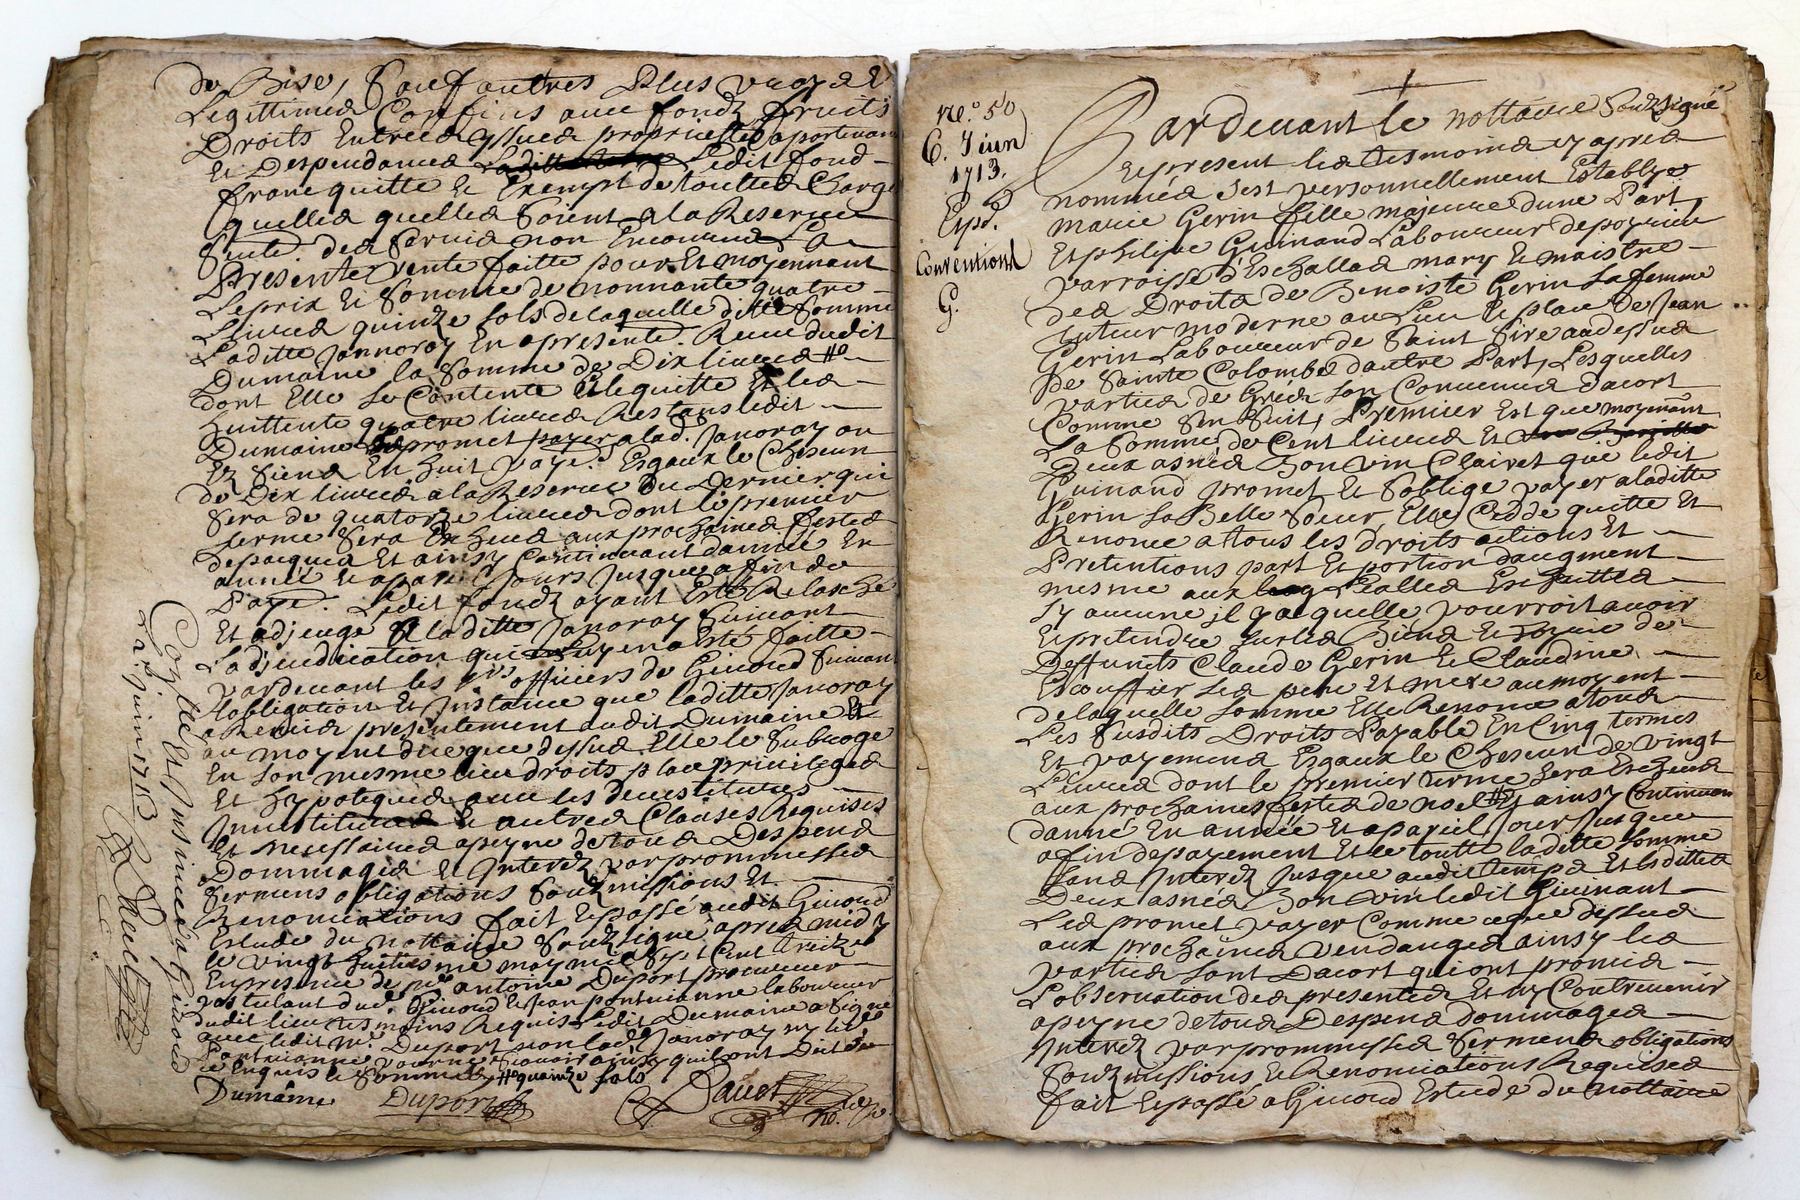 de Bise, Sauf autres plus vrays Et
Legittimes Confins avec fondz fruits
Droits Entrées yssues proprietés apartenan
Et Despendances Ledit fond
franc quitte Et Exempt de touttes Charge
quelles quelles Soient a la Reserve
des Servis non Encourus La
Presente vente faitte pour Et moyennant
Le prix Et Somme de nonnante quatre
Livres quinze sols de laquelle ditte Somme
Laditte Janoray En a presente. Receu dudit
Dumaine la Somme de Dix livres
dont Elle Se Contente Et le quitte Et les
huittente quatre livres Restans ledit
Dumaine promet payer a lad. Janoray ou
Ez Siens En huit paye. Esgaux le Chescun
de Dix livres a la Reserve du Dernier qui
Sera de quatorze livres dont le premier
terme Sera Escheu aux prochaines festes
de pacques Et ainsy Continuant d'année En
année Et a pareil Jours Jusques a fin de
Paye. Ledit fondz ayant Esté Relasché
Et adjeugé A laditte Janoray Suivant
Ladjeudication qui luy en a Esté faitte
pardevant les officiers de Givord Suivant
Lobligation Et Instance que laditte Janoray
a Remis presentement audit Dumaine Et
au moyent dice que dessus Elle le Subroge
En Son mesme lieu droits place privileges
Et hypoteques avec les devestitures
Investitures Et autres Clauses Requises
Et necessaires a peyne de tous Despens
Dommages Et Interetz par prommesses
Sermens obligations Soubzmissions Et
Renonciations fait Et passé audit Givord
Estude du nottaire Soubzsigné apres midy
le vingt huitiesme may mil Sept Cent treize
En presence de me antoine Duport procureur
postulant dud. Givord Et Jean laboureur
dudit lieu tesmoins Requis Ledit Dumaine a Signé
avec ledit Mr. Duport non lad. Janoray ny led.
pour ne Scavoir ainsy quil ont Dit de
ce Enquis quainze Sols
Dumaine Duport
Coll
2e Juin 1713
No. 50
6. Juin
1713.
Exp.
Conventions
G.
Pardevant le nottaire Soubzsigné
Et present les tesmoins cy apres
nommés Sest personnellement Establye
marie Gerin fille majeure dune Part
Et philipe Guinand Laboureur de
parroisse d'Eschallas mary Et maistre
des Droits de Benoiste Gerin Sa femme
tuteur moderne au Lieu Et place de Jean
Gerin Laboureur de Saint Sire au dessus
de Sainte Colombe dautre Part, Lesquelles
parties de Gréés Son Convenues dacort
Comme Sen Suit, Premier Est que moyenant
La Somme de Cent livres Et
Deux asnés Bon vin Clairet que ledit
Guinand promet Et Soblige payer a laditte
Gerin Sa Belle Soeur, Elle Cedde quitte Et
Renonce a tous les droits actions Et
Pretentions part Et portion daugment
mesme aux Escheittes
Sy aucune il y a quelle pourroit avoir
Et pretendre Sur les Biens Et hoyrie de
Deffunts Claude Gerin Et Claudine
Escouffier Ses pere Et mere au moyent
de laquelle Somme Elle Renonce a tous
Les Susdits Droits Payable En Cinq termes
Et payemens Esgaux le Chescun de vingt
Livres dont le premier terme Sera Escheu
aux prochaines festes de noel Et ainsy Continuan
danné En année Et a pareil Jour Jusque
a fin de payement Et le toutt laditte Somme
Sans Interetz Jusque audit temps Et lesdittes
Deux asnés Bon vin ledit Guinant
Les promet payer Comme a que dessus
aux prochaines vendanges ainsy les
parties Sont Dacort qui ont promis
Lobservation des presentes Et ny Contrevenir
a peyne de tous Despens dommages
Interetz par prommesses Sermens obligations
Soubzmissions Et Renonciations Requises
fait Et passé a Givord Estude du nottaire